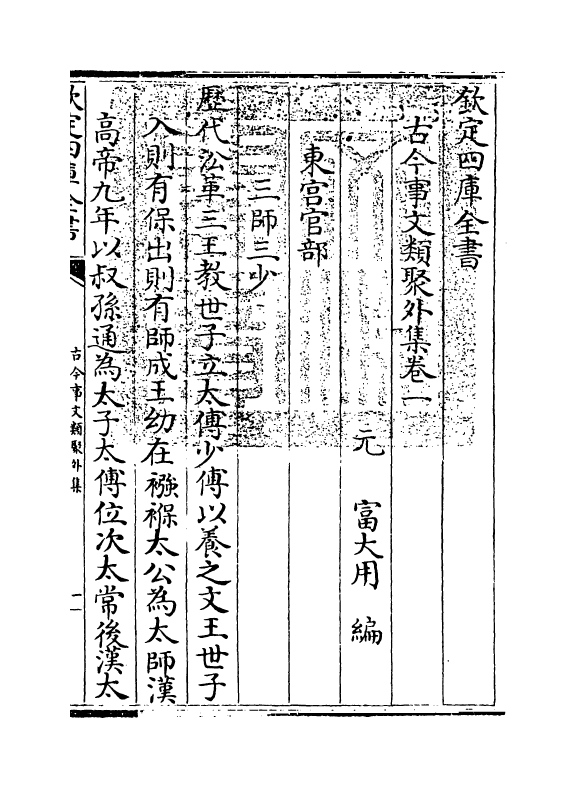 欽定四庫全書
古今事文類聚外集卷一
元 富大用 編
東宫官部
三師三少
歷代沿革三王教世子立太傅少傅以養之文王世子
入則有保出則有師成王幼在襁褓太公為太師漢
高帝九年以叔孫通為太子太傅位次太常後漢太
欽定四庫全書
古今事文類聚外集
一